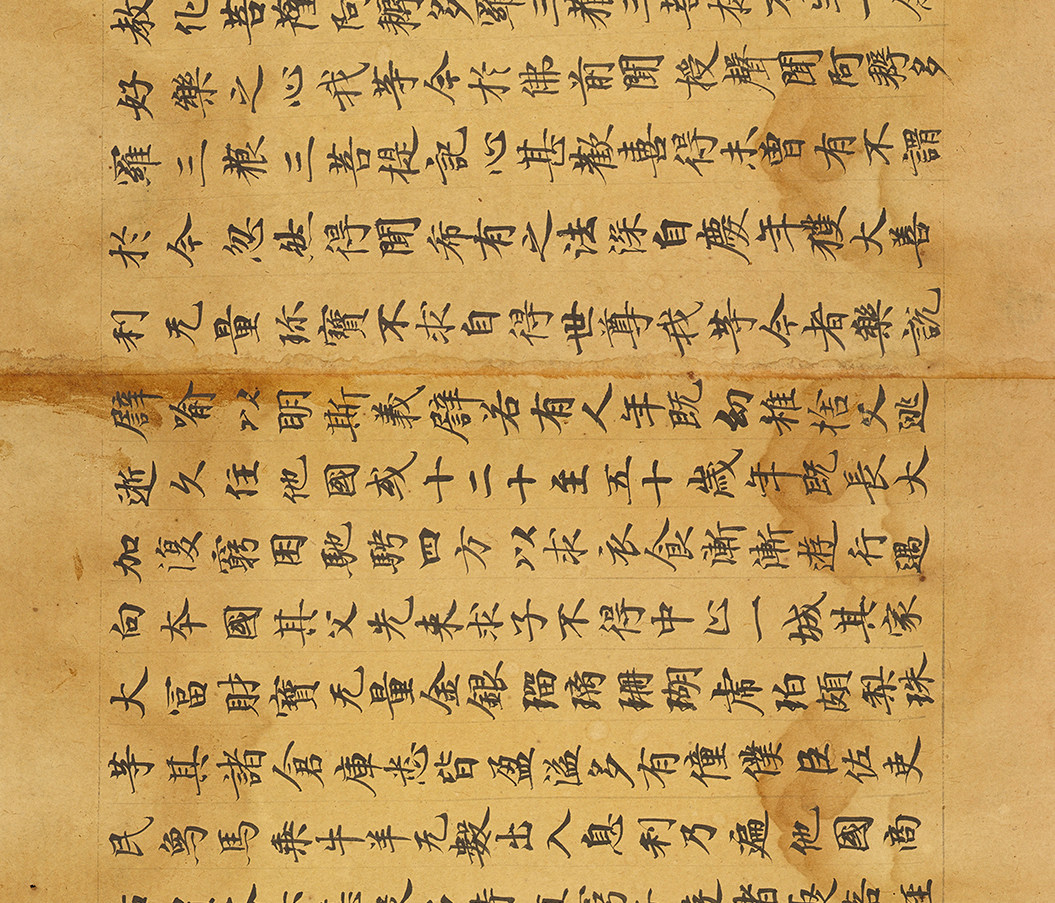 教化菩薩阿耨多羅三藐三菩提不生一念
好樂之心我等今於佛前聞授聲聞阿耨多
羅三藐三菩提記心甚歡喜得未曾有不謂
於今忽然得聞希有之法深自慶幸獲大善
利无量珎寶不求自得世尊我等今者樂說
譬喻以明斯義譬若有人年既幼稚捨父逃
逝久住他國或十二十至五十歲年既長大
加復窮困馳騁四方以求衣食漸漸遊行遇
向本國其父先来求子不得中止一城其家
大富財寶无量金銀瑠璃珊瑚虎珀頗梨珠
等其諸倉庫悉皆盈溢多有僮僕臣佐吏
民象馬乗牛羊无數出入息利乃遍他國商